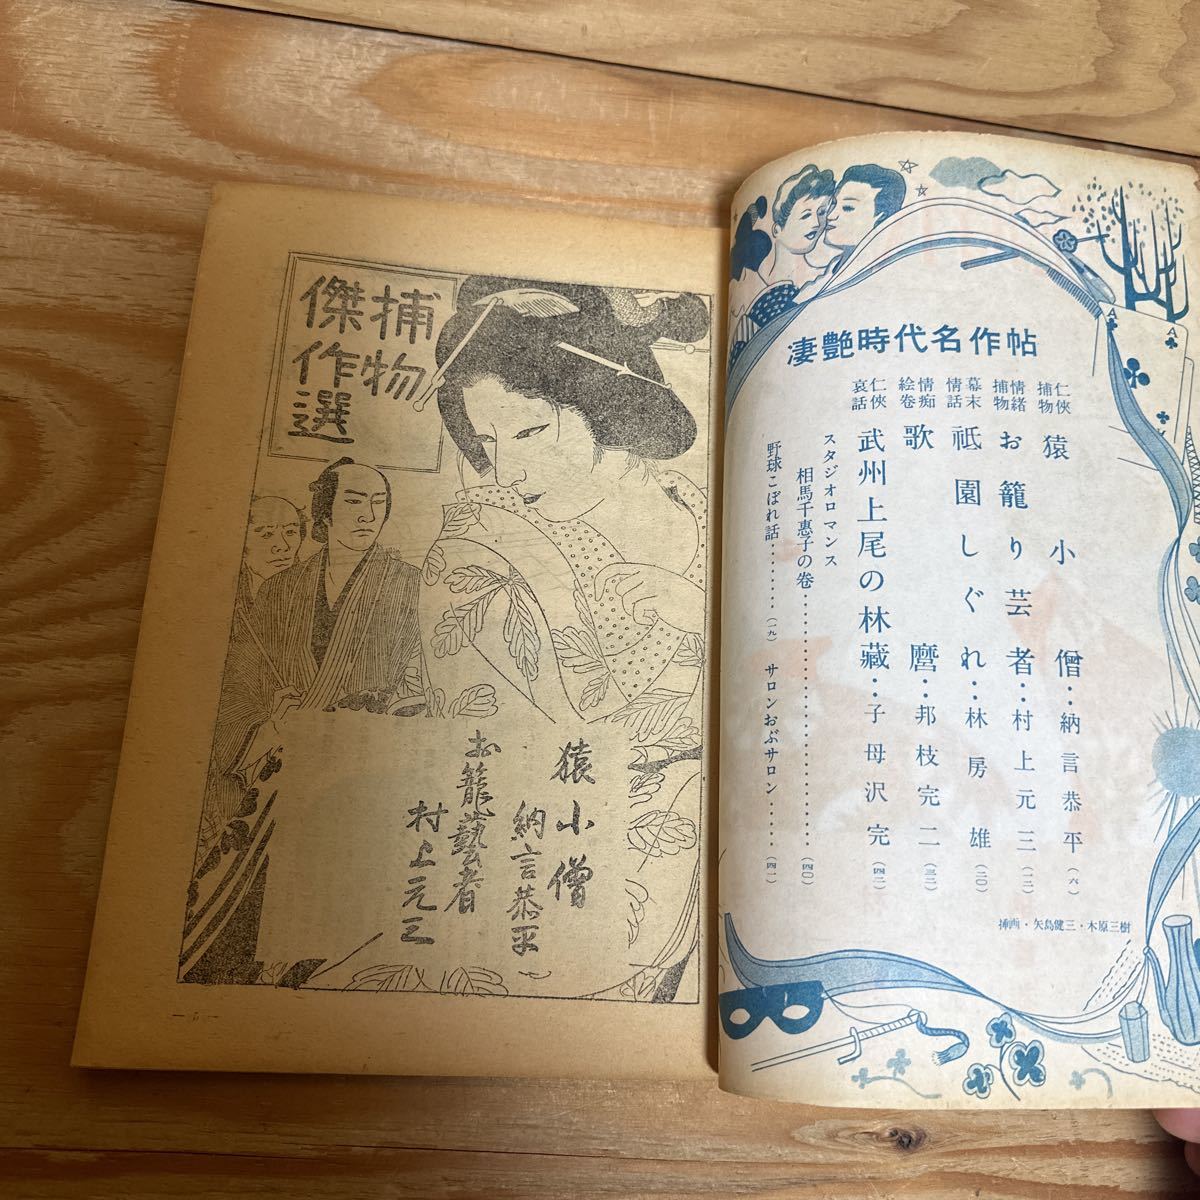 凄艶時代名作帖
仁侠捕物 猿小僧‥納言恭平(六)
情緒捕物 お籠り芸者‥村上元三(一三)
幕末情話 祇園しぐれ‥林房雄(二〇)
情痴絵巻 歌麿‥邦枝完二(三二)
仁侠哀話 武州上尾の林藏‥子母沢完(四二)
スタジオロマンス
相馬千惠子の巻‥‥‥‥‥‥‥‥‥‥(四〇)
野球こぼれ話‥‥‥‥(一九)
サロンおぶサロン‥‥‥(四一)
挿画・矢島健三・木原三樹
捕物
傑作選
猿小僧
納言恭平
お籠藝者
村上元三